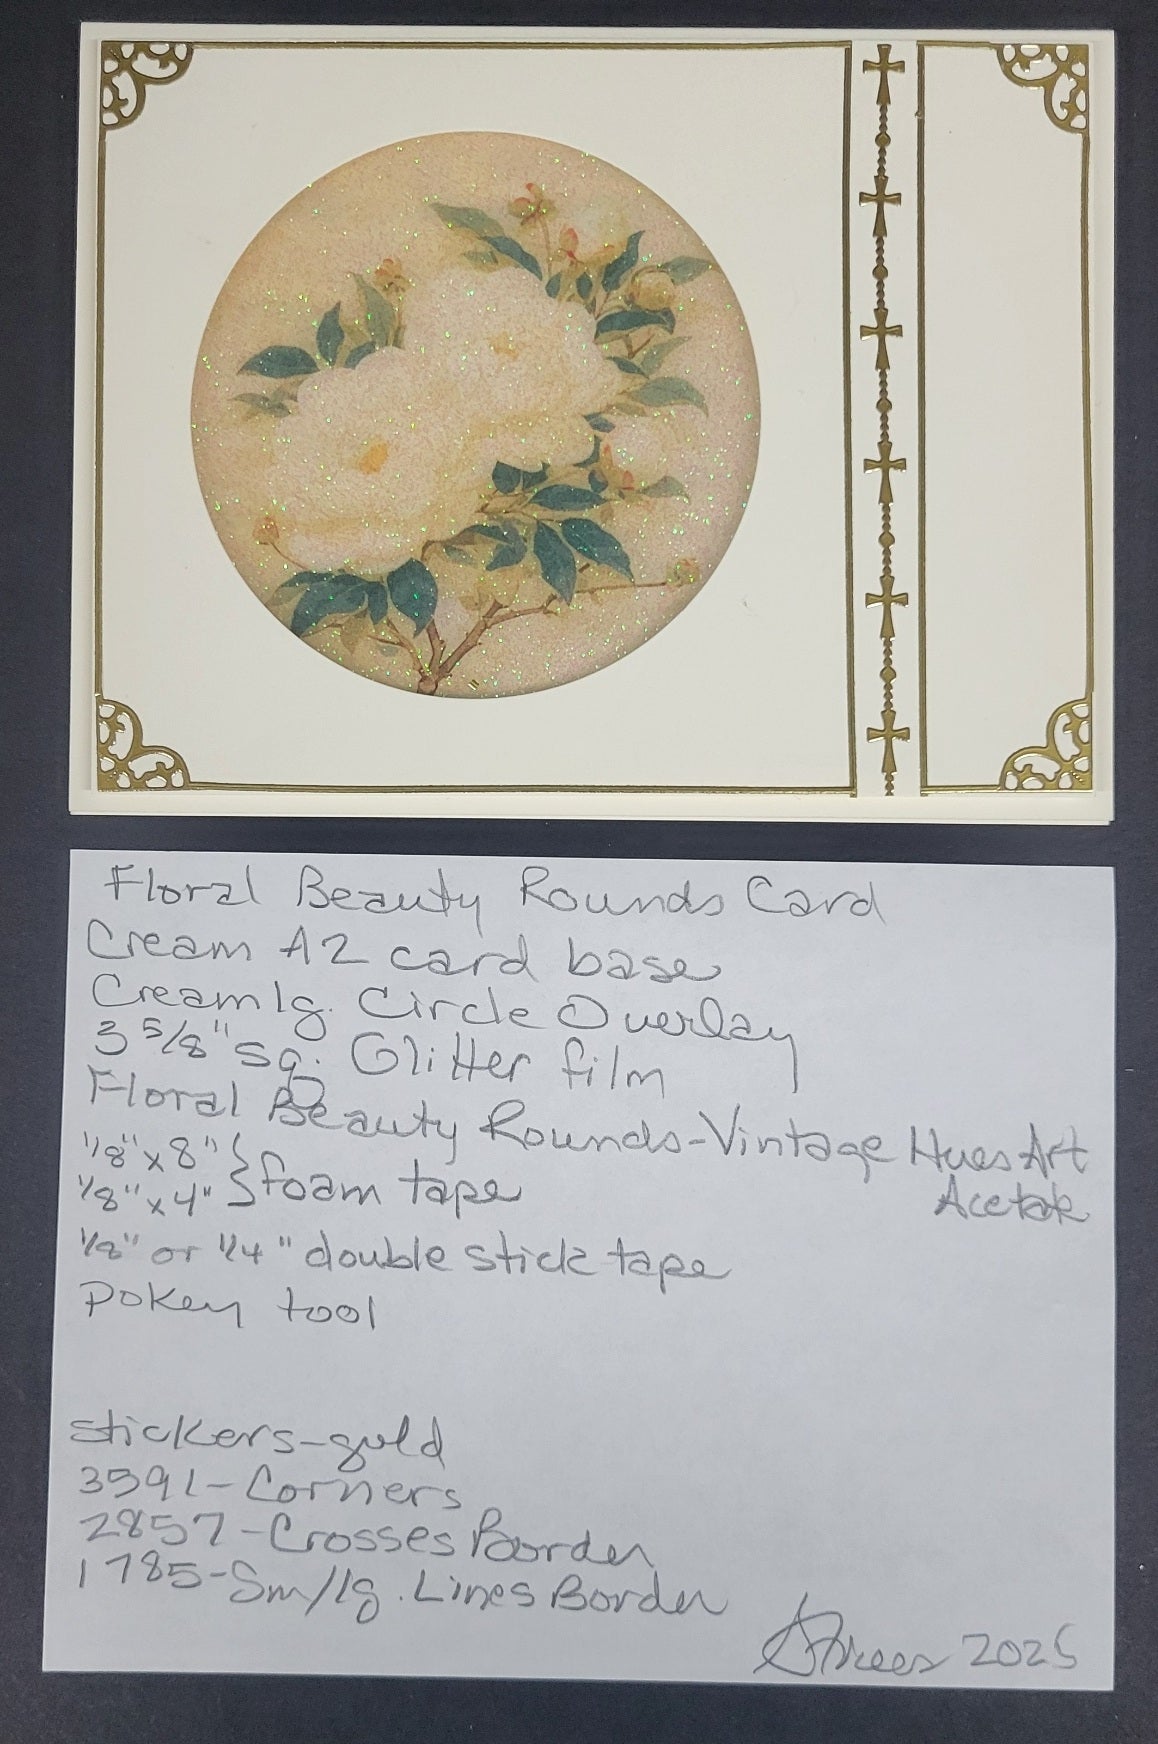 Floral Beauty Rounds Card
Cream A2 card base
Cream lg. Circle Overlay
3 5/8" sq. Glitter film
Floral Beauty Rounds-Vintage Hues Art
Acetate
1/8" x 8" } foam tape
1/8" x 4"
1/8" or 1/4" double stick tape
Pokey tool
stickers-gold
3591-Corners
2857-Crosses Border
1785-Sm/lg. Lines Border
2025